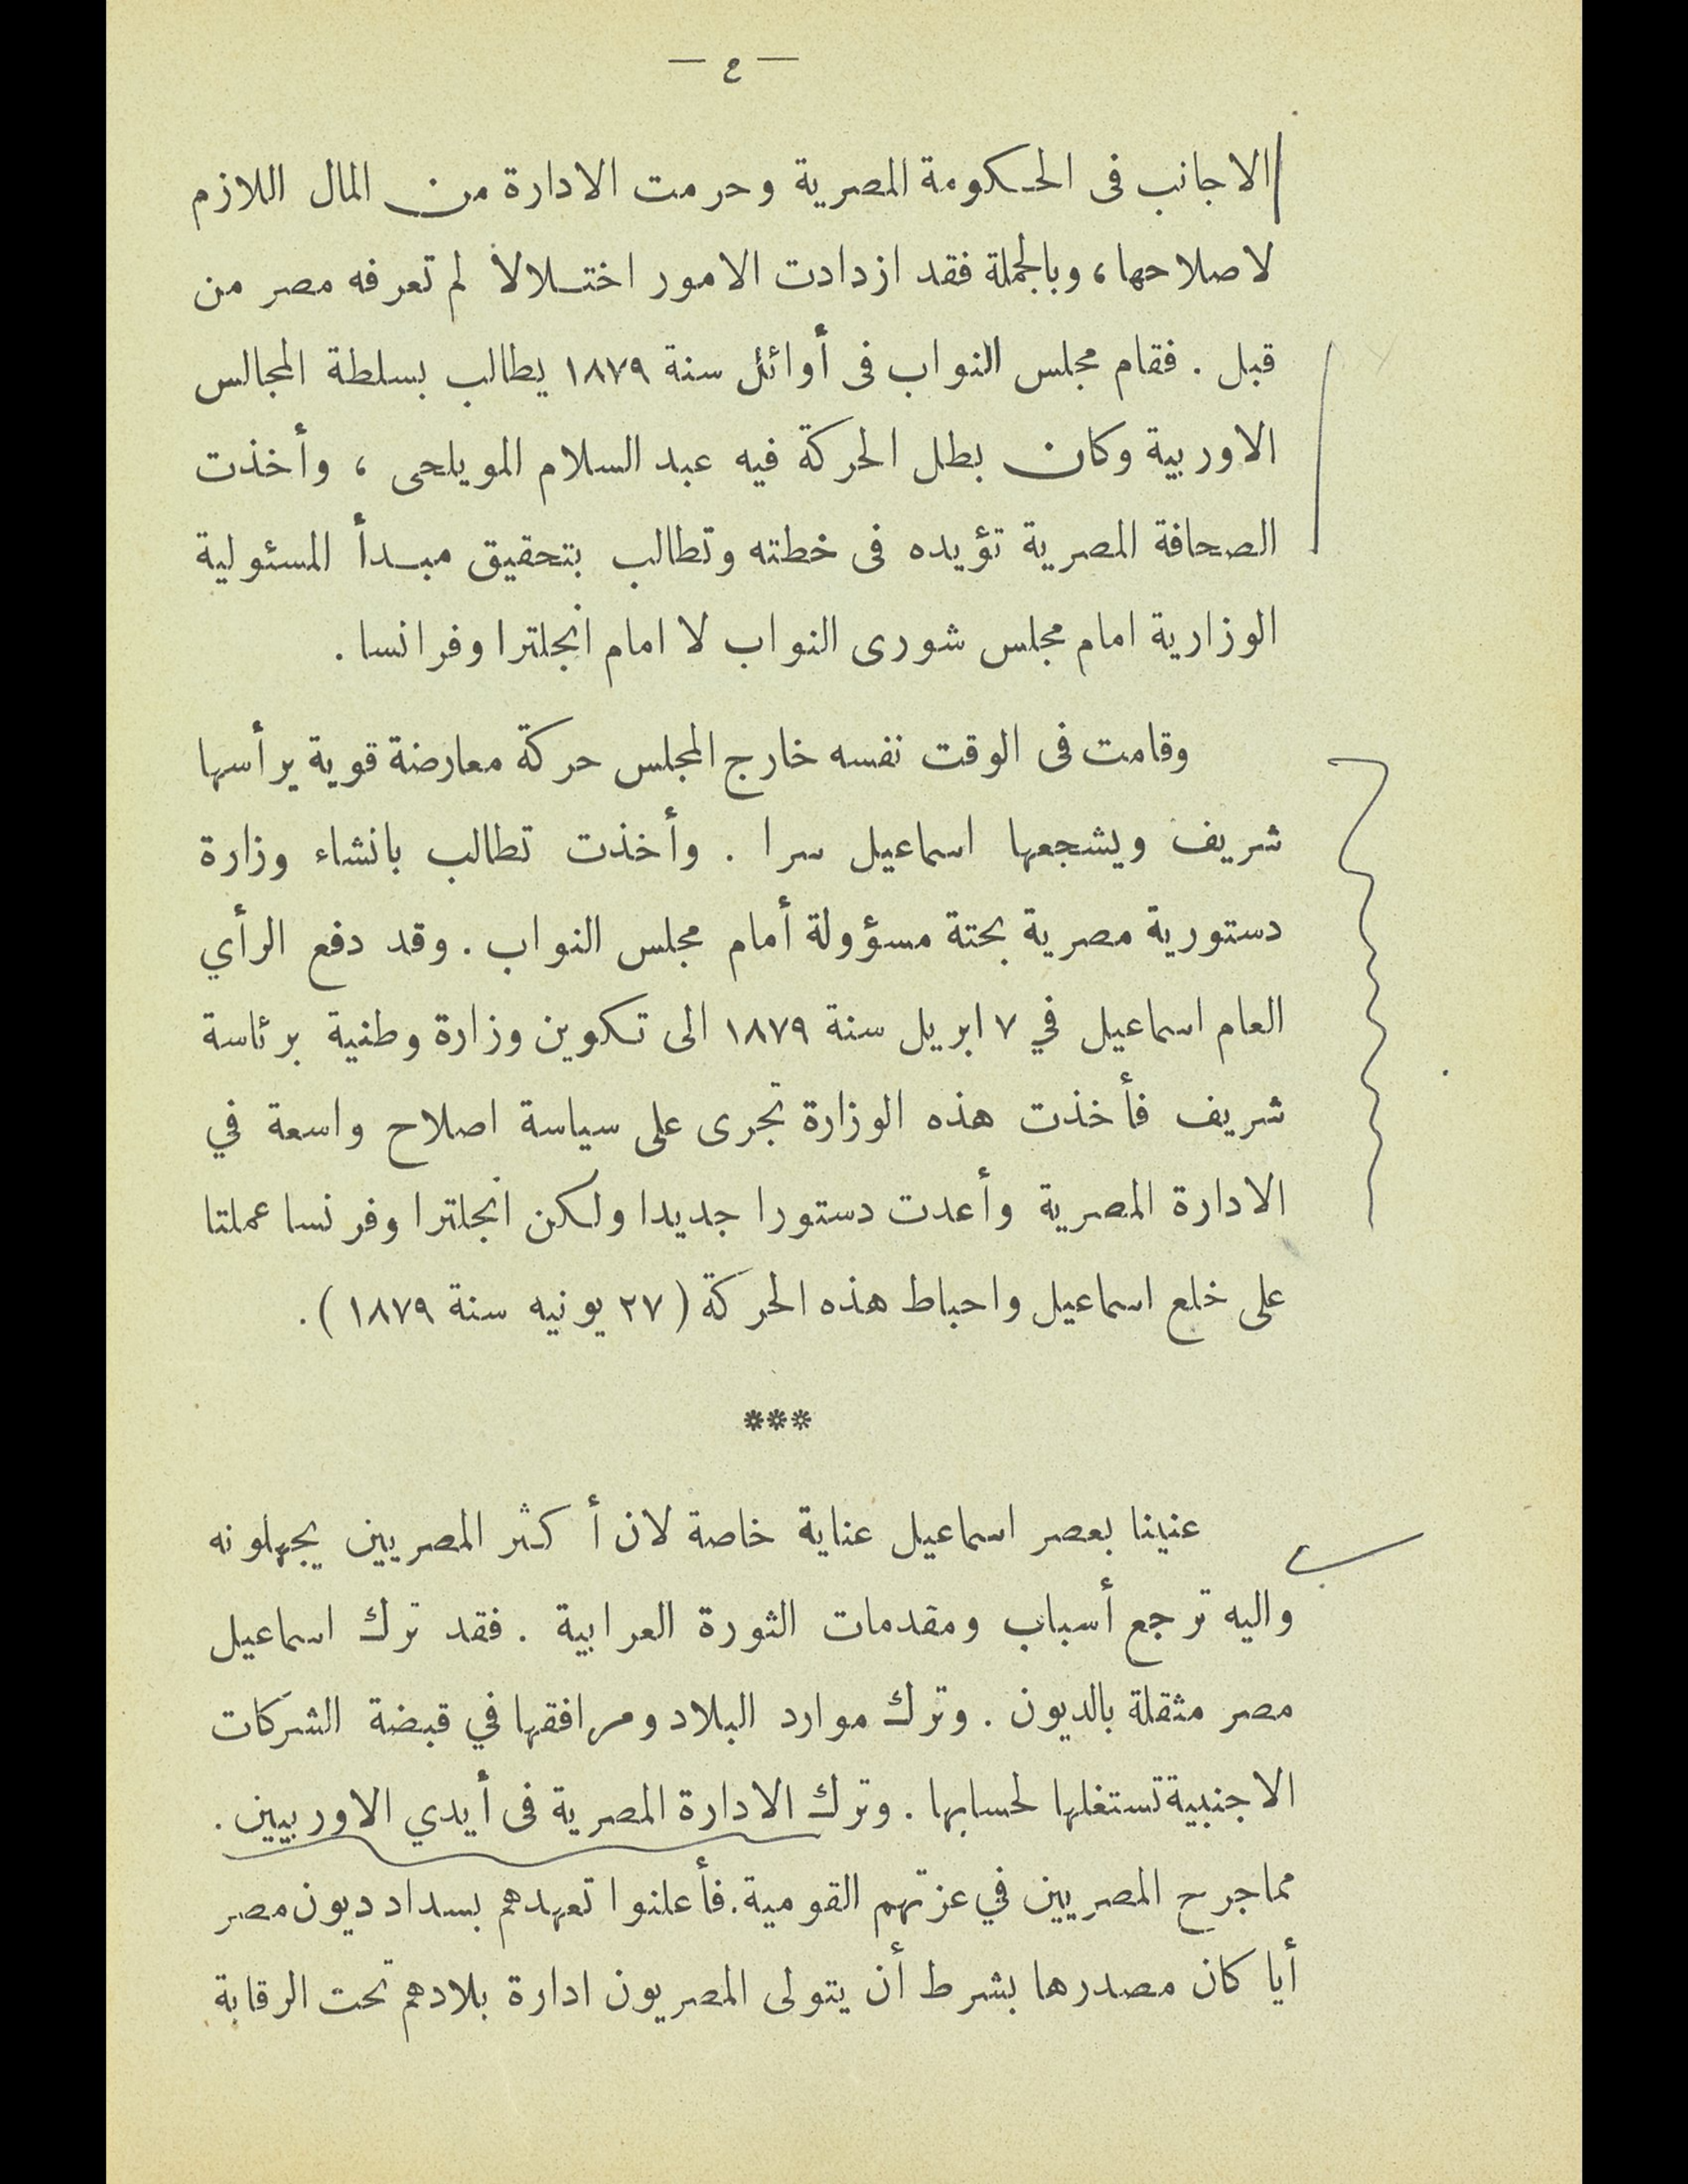 — ٤ —
الاجانب فى الحكومة المصرية وحرمت الادارة من المال اللازم
لاصلاحها، وبالجملة فقد ازدادت الامور اختلالا لم تعرفه مصر من
قبل . فقام مجلس النواب فى أوائل سنة ١٨٧٩ يطالب بسلطة المجالس
الاوربية وكان بطل الحركة فيه عبد السلام المويلحى ، وأخذت
الصحافة المصرية تؤيده فى خطته وتطالب بتحقيق مبدأ المسئولية
الوزارية امام مجلس شورى النواب لا امام انجلترا وفرانسا .
وقامت فى الوقت نفسه خارج المجلس حركة معارضة قوية يرأسها
شريف ويشجعها اسماعيل سرا . وأخذت تطالب بانشاء وزارة
دستورية مصرية بحتة مسؤولة أمام مجلس النواب . وقد دفع الرأي
العام اسماعيل في ٧ ابريل سنة ١٨٧٩ الى تكوين وزارة وطنية برئاسة
شريف فأخذت هذه الوزارة تجرى على سياسة اصلاح واسعة في
الادارة المصرية وأعدت دستورا جديدا ولكن انجلترا وفرنسا عملتا
على خلع اسماعيل واحباط هذه الحركة (٢٧ يونيه سنة ١٨٧٩) .
***
عنينا بعصر اسماعيل عناية خاصة لان أكثر المصريين يجهلونه
واليه ترجع أسباب ومقدمات الثورة العرابية . فقد ترك اسماعيل
مصر مثقلة بالديون . وترك موارد البلاد ومرافقها في قبضة الشركات
الاجنبية تستغلها لحسابها . وترك الادارة المصرية فى أيدي الاوربيين .
مما جرح المصريين في عزتهم القومية . فأعلنوا تعهدهم بسداد ديون مصر
أيا كان مصدرها بشرط أن يتولى المصريون ادارة بلادهم تحت الرقابة